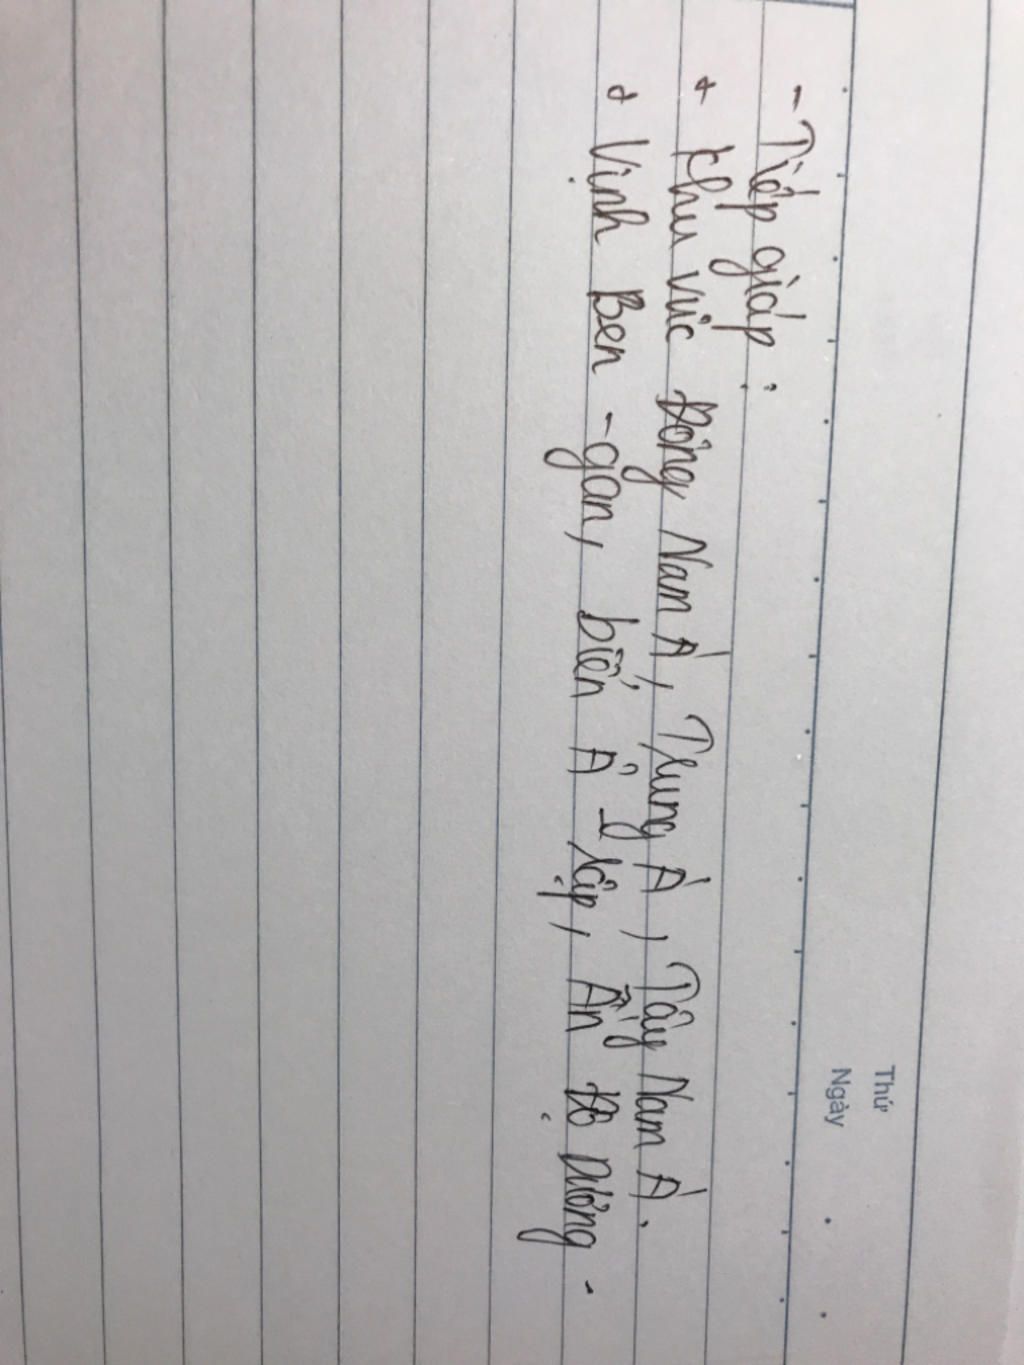 Thứ
Ngày
- Tiếp giáp :
+ Khu vực Đông Nam Á, Trung Á, Tây Nam Á.
+ Vịnh Ben - gan, biển A - rập, Ấn Độ Dương.